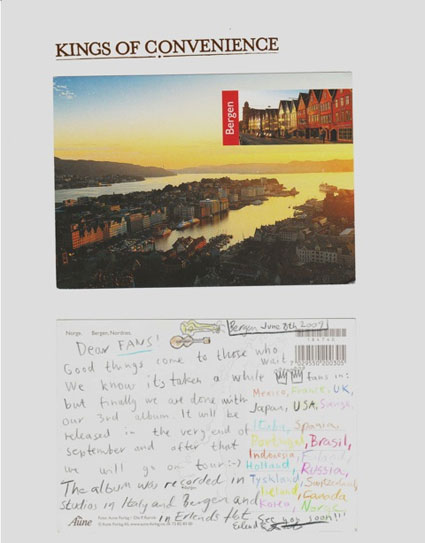 KINGS OF CONVENIENCE
Bergen
Norge. Bergen. Nordnes.
Bergen June 8th 2009
Dear FANS!
Good things come to those who wait
We know it's taken a while
but finally we are done with
our 3rd album. It will be
released in the very end of
september and after that
we will go on tour :-)
The album was recorded in
studios in Italy and Bergen and
in Erlends flat
fans in:
Mexico, France, UK,
Japan, USA, Sverige,
Italia, Spania,
Portugal, Brasil,
Indonesia, Finland,
Holland, Russia,
Tyckland, Switzerland
Iceland, Canada
Korea, Norge
See you soon!!!
Erlend
Aune